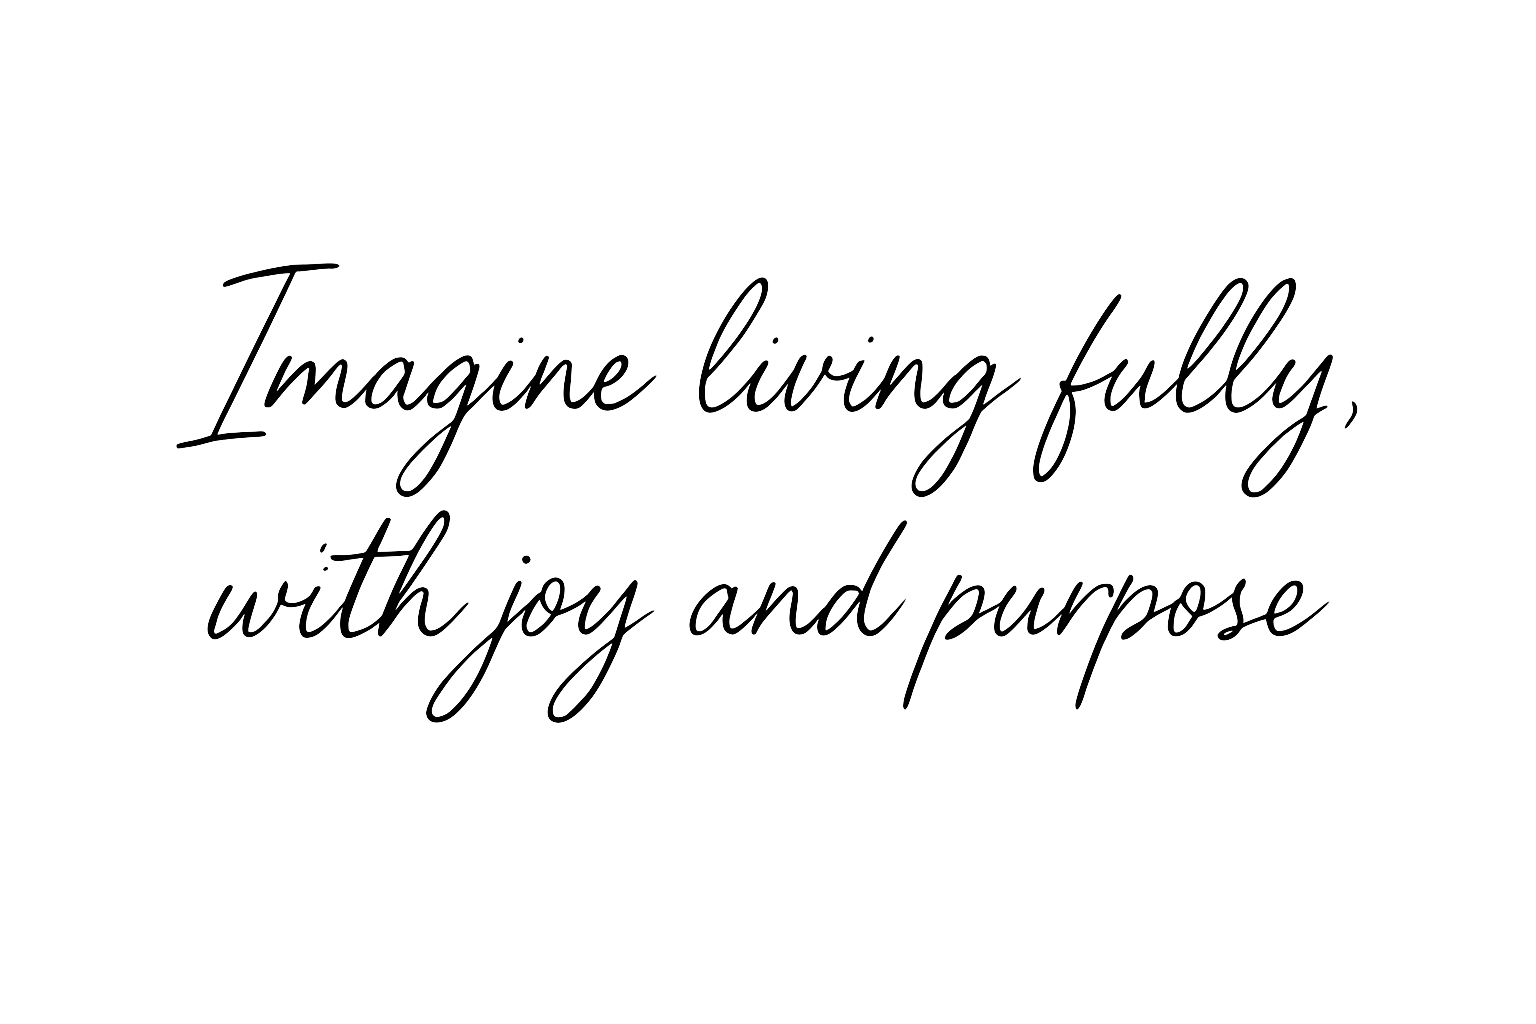 Imagine living fully,
with joy and purpose